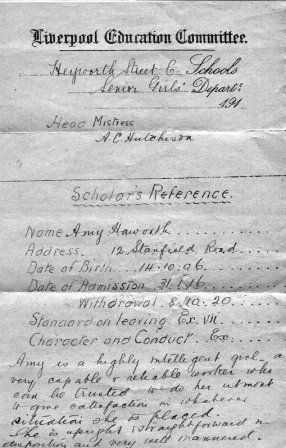 Liverpool Education Committee.
Heyworth Street C. Schools
Senior Girls' Depart:
191
Head Mistress
A.C. Hutchison
Scholar's Reference.
Name Amy Haworth
Address. 12 Stanfield Road
Date of Birth 14.10.06
Date of Admission 31.1.16
Withdrawal 8.10.20.
Standard on leaving Ex. VII.
Character and Conduct. Ex.
Amy is a highly intelligent girl, a
very capable & reliable worker who
can be trusted to do her utmost
to give satisfaction in whatever
situation she is placed.
She is upright & straightforward in
disposition and very well mannered.